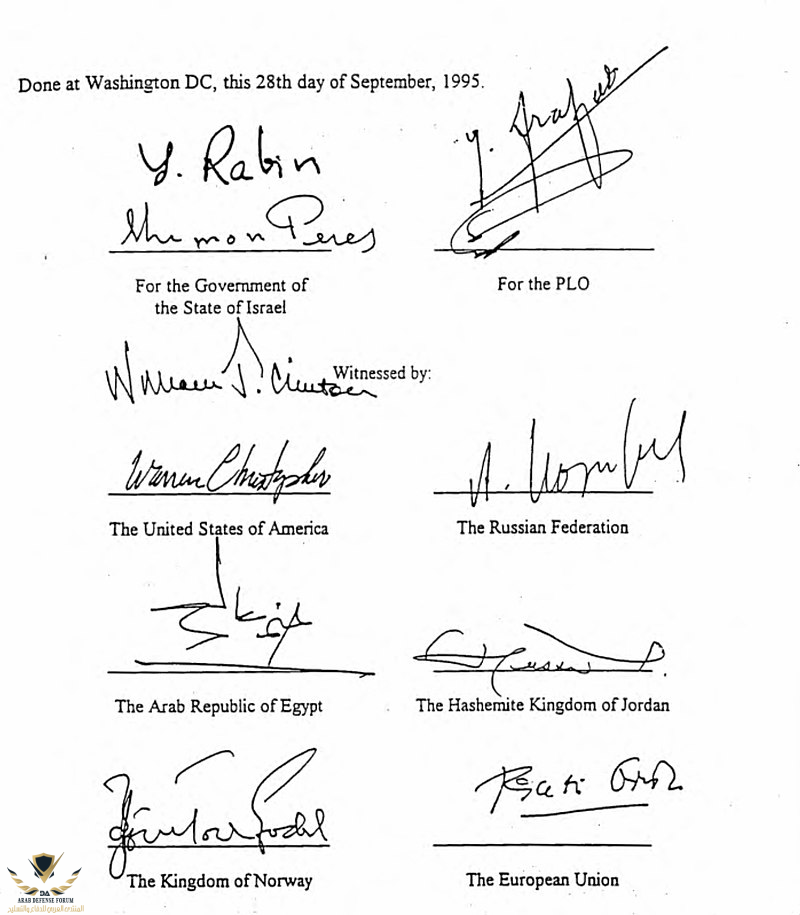 Done at Washington DC, this 28th day of September, 1995.
Y. Rabin
Y. Arafat
Shimon Peres
For the Government of
the State of Israel
For the PLO
William J. Clinton
Witnessed by:
Warren Christopher
The United States of America
The Russian Federation
The Arab Republic of Egypt
The Hashemite Kingdom of Jordan
The Kingdom of Norway
The European Union
ARAB DEFENSE FORUM
المنتدى العربي للدفاع والتسليح